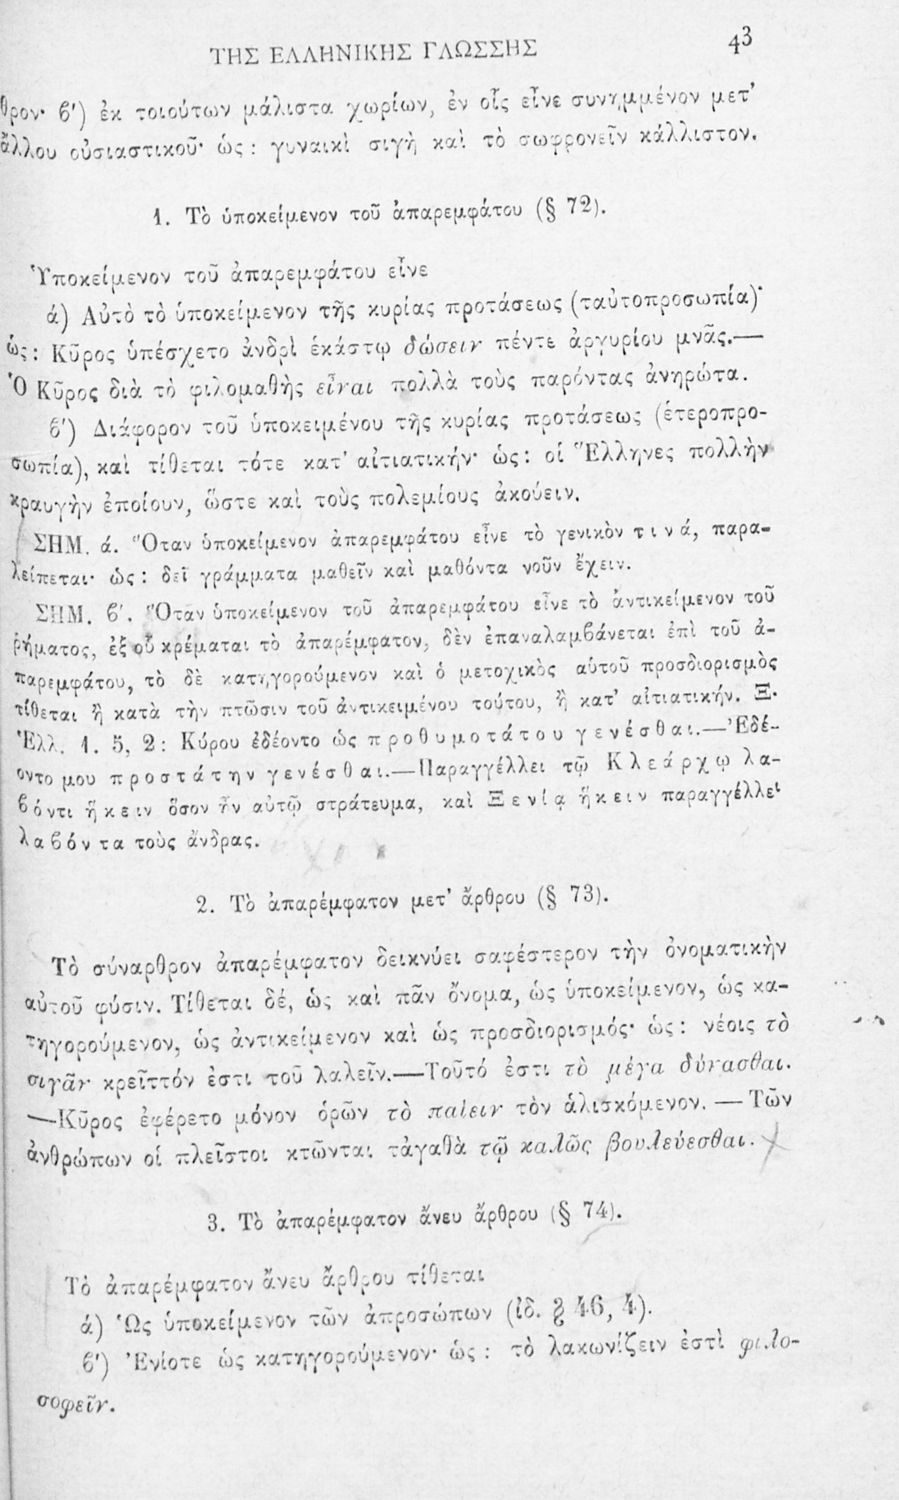 ΤΗΣ ΕΛΛΗΝΙΚΗΣ ΓΛΩΣΣΗΣ 43
θρον· β′) ἐκ τοιούτων μάλιστα χωρίων, ἐν οἷς εἶνε συνημμένον μετ’
ἄλλου οὐσιαστικοῦ· ὡς : γυναικὶ σιγὴ καὶ τὸ σωφρονεῖν κάλλιστον.
1. Τὸ ὑποκείμενον τοῦ ἀπαρεμφάτου (§ 72).
Ὑποκείμενον τοῦ ἀπαρεμφάτου εἶνε
ά) Αὐτὸ τὸ ὑποκείμενον τῆς κυρίας προτάσεως (ταὐτοπροσωπία)·
ὡς : Κῦρος ὑπέσχετο ἀνδρὶ ἑκάστῳ δώσειν πέντε ἀργυρίου μνᾶς.—
Ὁ Κῦρος διὰ τὸ φιλομαθὴς εἶναι πολλὰ τοὺς παρόντας ἀνηρώτα.
β′) Διάφορον τοῦ ὑποκειμένου τῆς κυρίας προτάσεως (ἑτεροπρο-
σωπία), καὶ τίθεται τότε κατ’ αἰτιατικήν· ὡς : οἱ Ἕλληνες πολλὴν
κραυγὴν ἐποίουν, ὥστε καὶ τοὺς πολεμίους ἀκούειν.
ΣΗΜ. ά. Ὅταν ὑποκείμενον ἀπαρεμφάτου εἶνε τὸ γενικὸν τινά, παρα-
λείπεται· ὡς : δεῖ γράμματα μαθεῖν καὶ μαθόντα νοῦν ἔχειν.
ΣΗΜ. β′. Ὅταν ὑποκείμενον τοῦ ἀπαρεμφάτου εἶνε τὸ ἀντικείμενον τοῦ
ῥήματος, ἐξ οὗ κρέμαται τὸ ἀπαρέμφατον, δὲν ἐπαναλαμβάνεται ἐπὶ τοῦ ἀ-
παρεμφάτου, τὸ δὲ κατηγορούμενον καὶ ὁ μετοχικὸς αὐτοῦ προσδιορισμὸς
τίθεται ἢ κατὰ τὴν πτῶσιν τοῦ ἀντικειμένου τούτου, ἢ κατ’ αἰτιατικήν. Ξ.
Ἑλλ. 1. 5, 2 : Κύρου ἐδέοντο ὡς προθυμοτάτου γενέσθαι.—Ἐδέ-
οντο μου προστάτην γενέσθαι.—Παραγγέλλει τῷ Κλεάρχῳ λα-
βόντι ἥκειν ὅσον ἦν αὐτῷ στράτευμα, καὶ Ξενίᾳ ἥκειν παραγγέλλει
λαβόντα τοὺς ἄνδρας.
2. Τὸ ἀπαρέμφατον μετ’ ἄρθρου (§ 73).
Τὸ σύναρθρον ἀπαρέμφατον δεικνύει σαφέστερον τὴν ὀνοματικὴν
αὐτοῦ φύσιν. Τίθεται δέ, ὡς καὶ πᾶν ὄνομα, ὡς ὑποκείμενον, ὡς κα-
τηγορούμενον, ὡς ἀντικείμενον καὶ ὡς προσδιορισμός· ὡς : νέοις τὸ
σιγᾶν κρεῖττόν ἐστι τοῦ λαλεῖν.—Τοῦτό ἐστι τὸ μέγα δύνασθαι.
—Κῦρος ἐφέρετο μόνον ὁρῶν τὸ παίειν τὸν ἁλισκόμενον. — Τῶν
ἀνθρώπων οἱ πλεῖστοι κτῶνται τἀγαθὰ τῷ καλῶς βουλεύεσθαι.
3. Τὸ ἀπαρέμφατον ἄνευ ἄρθρου (§ 74).
Τὸ ἀπαρέμφατον ἄνευ ἄρθρου τίθεται
ά) Ὡς ὑποκείμενον τῶν ἀπροσώπων (ἰδ. § 46, 4).
β′) Ἐνίοτε ὡς κατηγορούμενον· ὡς : τὸ λακωνίζειν ἐστὶ φιλο-
σοφεῖν.